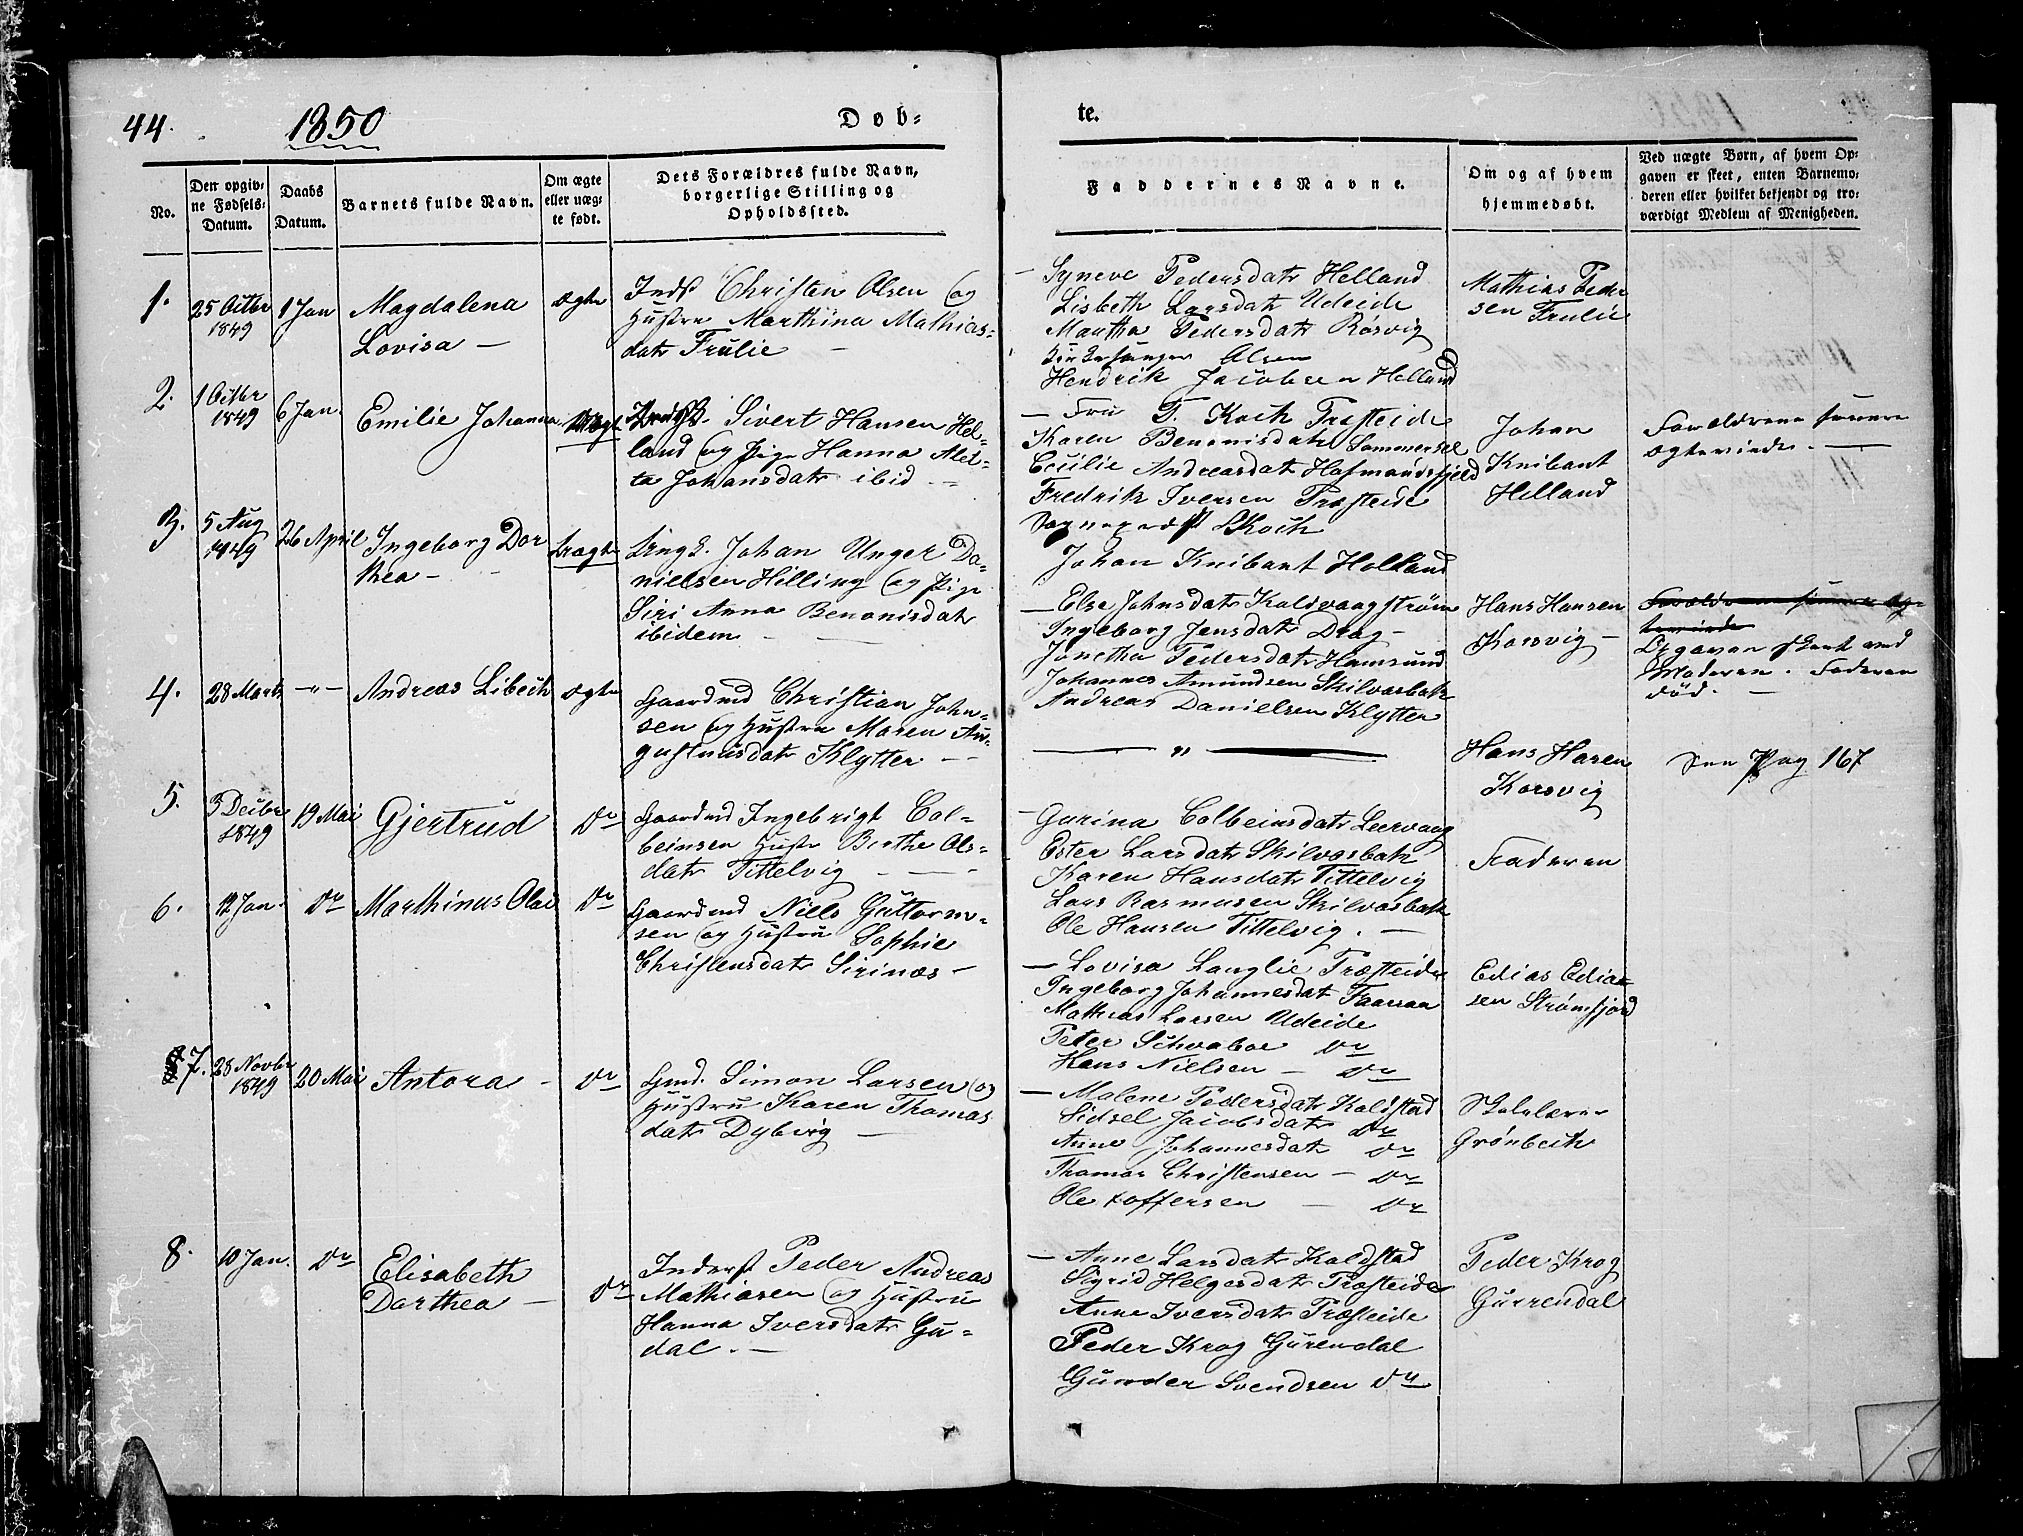 44.
1850
Døb-
te.
No.
Den opgiv-
ne Fødsels-
Datum.
Daabs
Datum.
Barnets fulde Navn.
Om ægte
eller uæg-
te født.
Dets Forældres fulde Navn,
borgerlige Stilling og
Opholdssted.
Faddernes Navne.
Om og af hvem
hjemmedøbt.
Ved uægte Børn, af hvem Op-
gaven er skeet, enten Barnemo-
deren eller hvilket bekjendt og tro-
værdigt Medlem af Menigheden.
1.
25 Octbr
1849
1 Jan
Magdalena
Lovisa —
ægte
Inds Christen Olsen og
Hustru Marthina Mathias-
datr Frulie —
— Syneve Pedersdatr Helland
Lisbeth Larsdatr Udeide
Martha Pedersdatr Rørsvig
Olsen
Hendrik Jacobsen Helland
Mathias Peder
sen Frulie
2.
1 Octbr
1849
6 Jan.
Emilie Johanna
Sivert Hansen Hel-
land og Pige Hanna Alet-
ta Johansdatr ibid —
— Fru T. Koch Præsteide
Karen Benonisdatr Sommersel
Cecilie Andreasdat Hafmandsfjeld
Fredrik Iversen Præsteide
Sognepræst Koch
Johan Knibant Helland
Johan
Knibant
Helland
Forældrene senere
ægteviede. —
3.
5 Aug
1849
26 April
Ingeborg Dor
thea —
Uægte
Ungk. Johan Unger Da-
nielsen Hilling og Pige
Siri Anna Benonisdatr
ibidem —
— Else Johnsdatr Kaldvaagstrøm
Ingeborg Jensdatr Drag —
Jonetha Pedersdatr Hamsund
Johannes Amundsen Skilvasbak
Andreas Danielsen Klytter
Hans Hansen
Korsvig —
Forældrene senere æg-
teviede
Opgaven skeet ved
Moderen. Faderen
død. —
4.
28 Marts
—"—
Andreas Libech
ægte
Gaardmd Christian John-
sen og Hustru Maren Au-
gustinusdatr Klytter —
— " —
Hans Hansen
Korsvig
See Pag 167
5.
3 Decbr
1849
19 Mai
Gjertrud
Do
Gaardmd Ingebrigt Col-
beinsen Hustr Berthe Ols-
datr Tittelvig —
— Gurina Colbeinsdatr Leervaag
Ester Larsdatr Skilvasbak
Karen Hansdatr Tittelvig
Lars Rasmusen Skilvasbak
Ole Hansen Tittelvig. —
Faderen
6.
12 Jan.
Do
Marthinus Olai
Do
Gaardmd Niels Guttorm-
sen og Hustru Sophie
Christensdatr Sirinæs —
— Lovisa Langlie Præsteide
Ingeborg Johannesdat
Mathias Larsen Udeide
Peter Schvaboe Do
Hans Nielsen — Do
Edias Edias-
sen Strømfjord
7.
28 Novbr
1849
20 Mai
Antora —
Do
Gmd. Simon Larsen og
Hustru Karen Thomas
datr Dybvig —
— Malene Pedersdatr Kaldstad
Sidsel Jacobsdatr Do
Anne Johannesdat Do
Thomas Christensen — Do
Ole toffersen — Do
Skolelærer
Grønbech
8.
10 Jan.
Do
Elisabeth
Dorthea —
Do
Inderst Peder Andreas
Mathiasen og Hustru
Hanna Iversdatr Gu-
dal. —
— Anne Larsdatr Kaldstad
Sigrid Helgesdatr Præsteide
Anne Iversdatr Præsteide
Peder Krog Gurendal
Gunder Svendsen Do
Peder Krog
Gurrendal